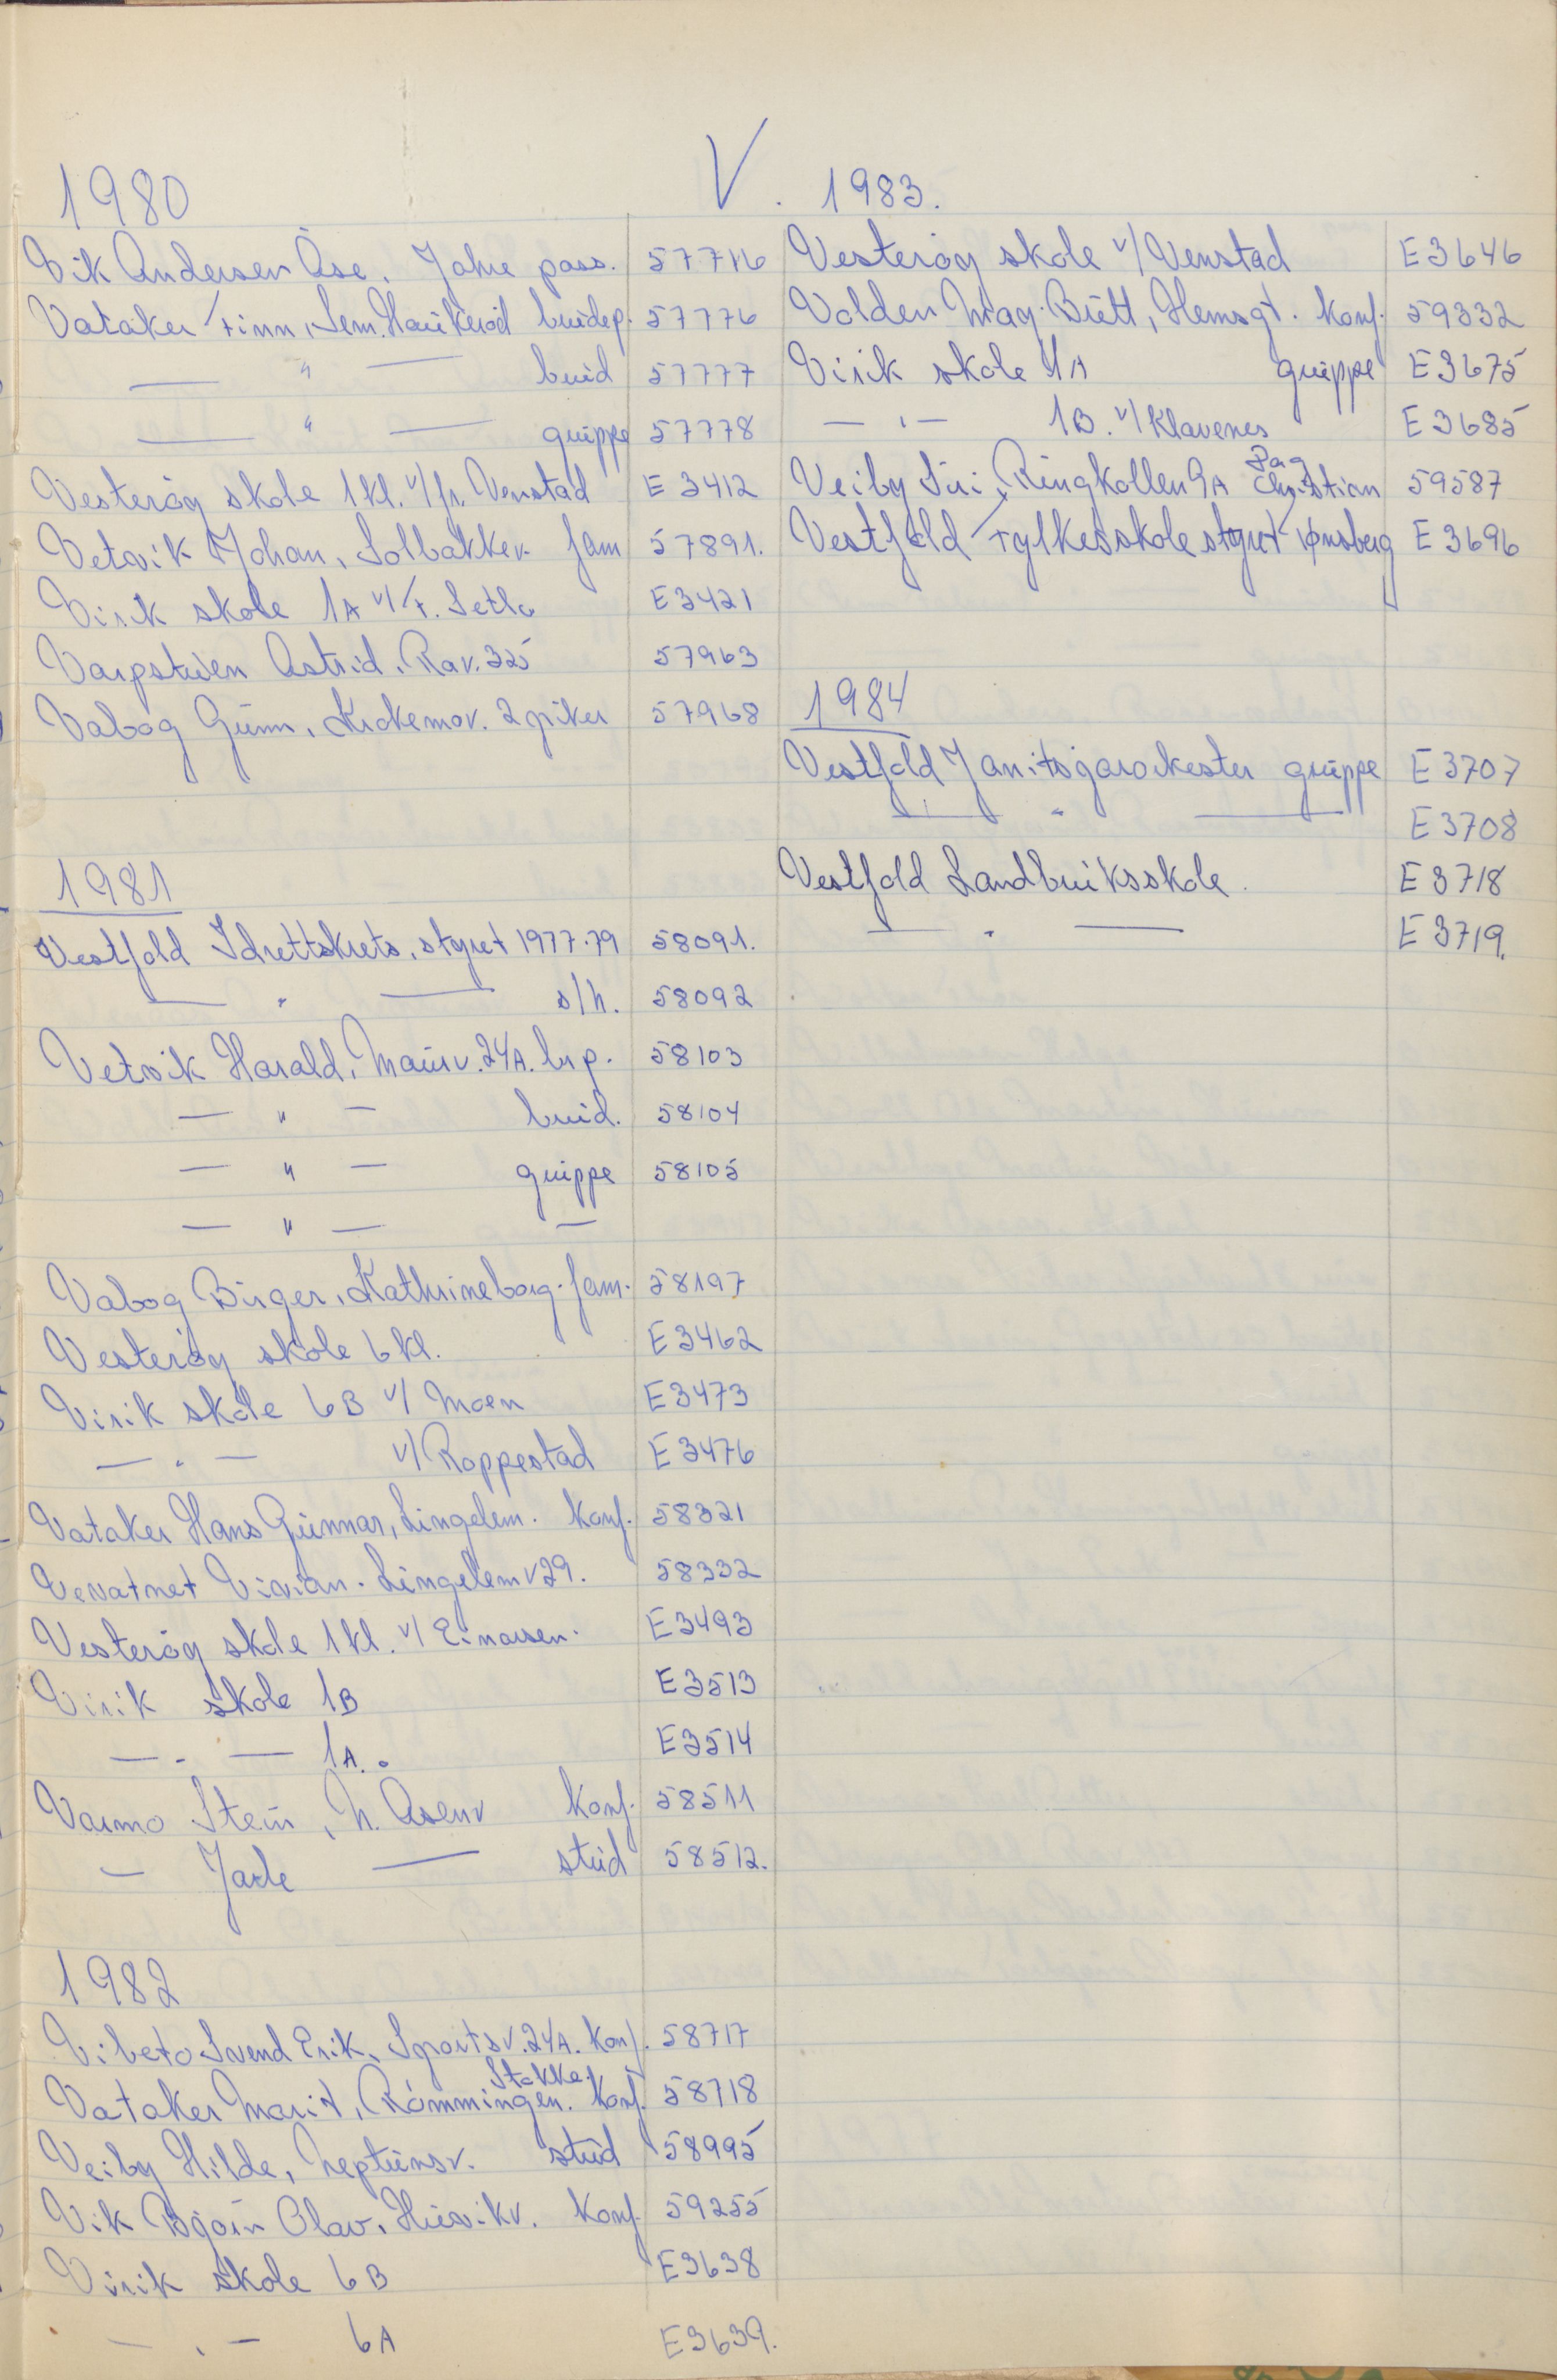 V.
1980
Vik Andersen Åse. Jahre pass. 57716
Vataker Finn, Sem. Haukerød brudep. 57776
— " — brud 57777
— " — gruppe 57778
Vesterøy skole 1 kl. v/fr. Venstad E 3412
Vetvik Johan, Solbakkev. fam 57891.
Virik skole 1A v/F. Setlo E3421
Varpstuen Astrid. Rav. 325 57963
Vabog Gunn, Krokemov. 2 piker 57968
1981
Vestfold Idrettskrets, styret 1977-79 58091.
— " — s/h. 58092
Vetvik Harald, Maurv. 24A. brp. 58103
— " — brud. 58104
— " — gruppe 58105
— " — —
Vabog Birger, Kathrineborg. fam. 58197
Vesterøy skole 6 kl. E3462
Virik skole 6B v/ Moen E3473
— " — v/ Roppestad E3476
Vataker Hans Gunnar, Lingelem. konf. 58321
Vevatnet Vivian. Lingelemv 29. 58332
Vesterøy skole 1 kl. v/ Einarsen. E3493
Virik skole 1B E3513
— " — 1A. E3514
Varmo Stein, N. Åsenv konf. 58511
— Jarle — stud 58512.
1982
Vibeto Svend Erik, Sportsv. 24A. konf. 58717
Vataker Marit, Rømmingen. Stokke. konf. 58718
Veiby Hilde, Neptunsv. stud 58995
Vik Bjørn Olav, Husvikv. konf. 59255
Virik skole 6B E3638
— " — 6A E3639.
1983.
Vesterøy skole v/ Venstad E3646
Volden May-Britt, Hemsgt. konf. 59332
Virik skole 1A gruppe E3675
— " — 1B. v/ Klavenes E3685
Veiby Siri, Ringkollen 9A Dag Christian 59587
Vestfold Fylkesskolestyret Tønsberg E3696
1984
Vestfold Janitsjarorkester gruppe E3707
— " — E3708
Vestfold Landbruksskole. E3718
— " — E3719.